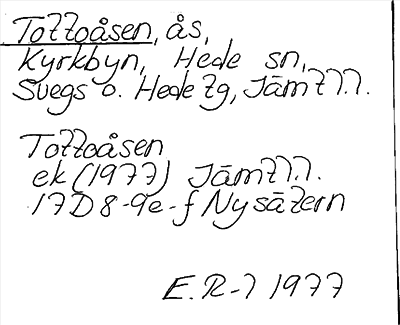 Tottoåsen, ås,
Kyrkbyn, Hede sn,
Svegs o. Hede tg, Jämtl.
Tottoåsen
ek (1977) Jämtl.
17D 8-9e-f Nysätern
E. R-l 1977